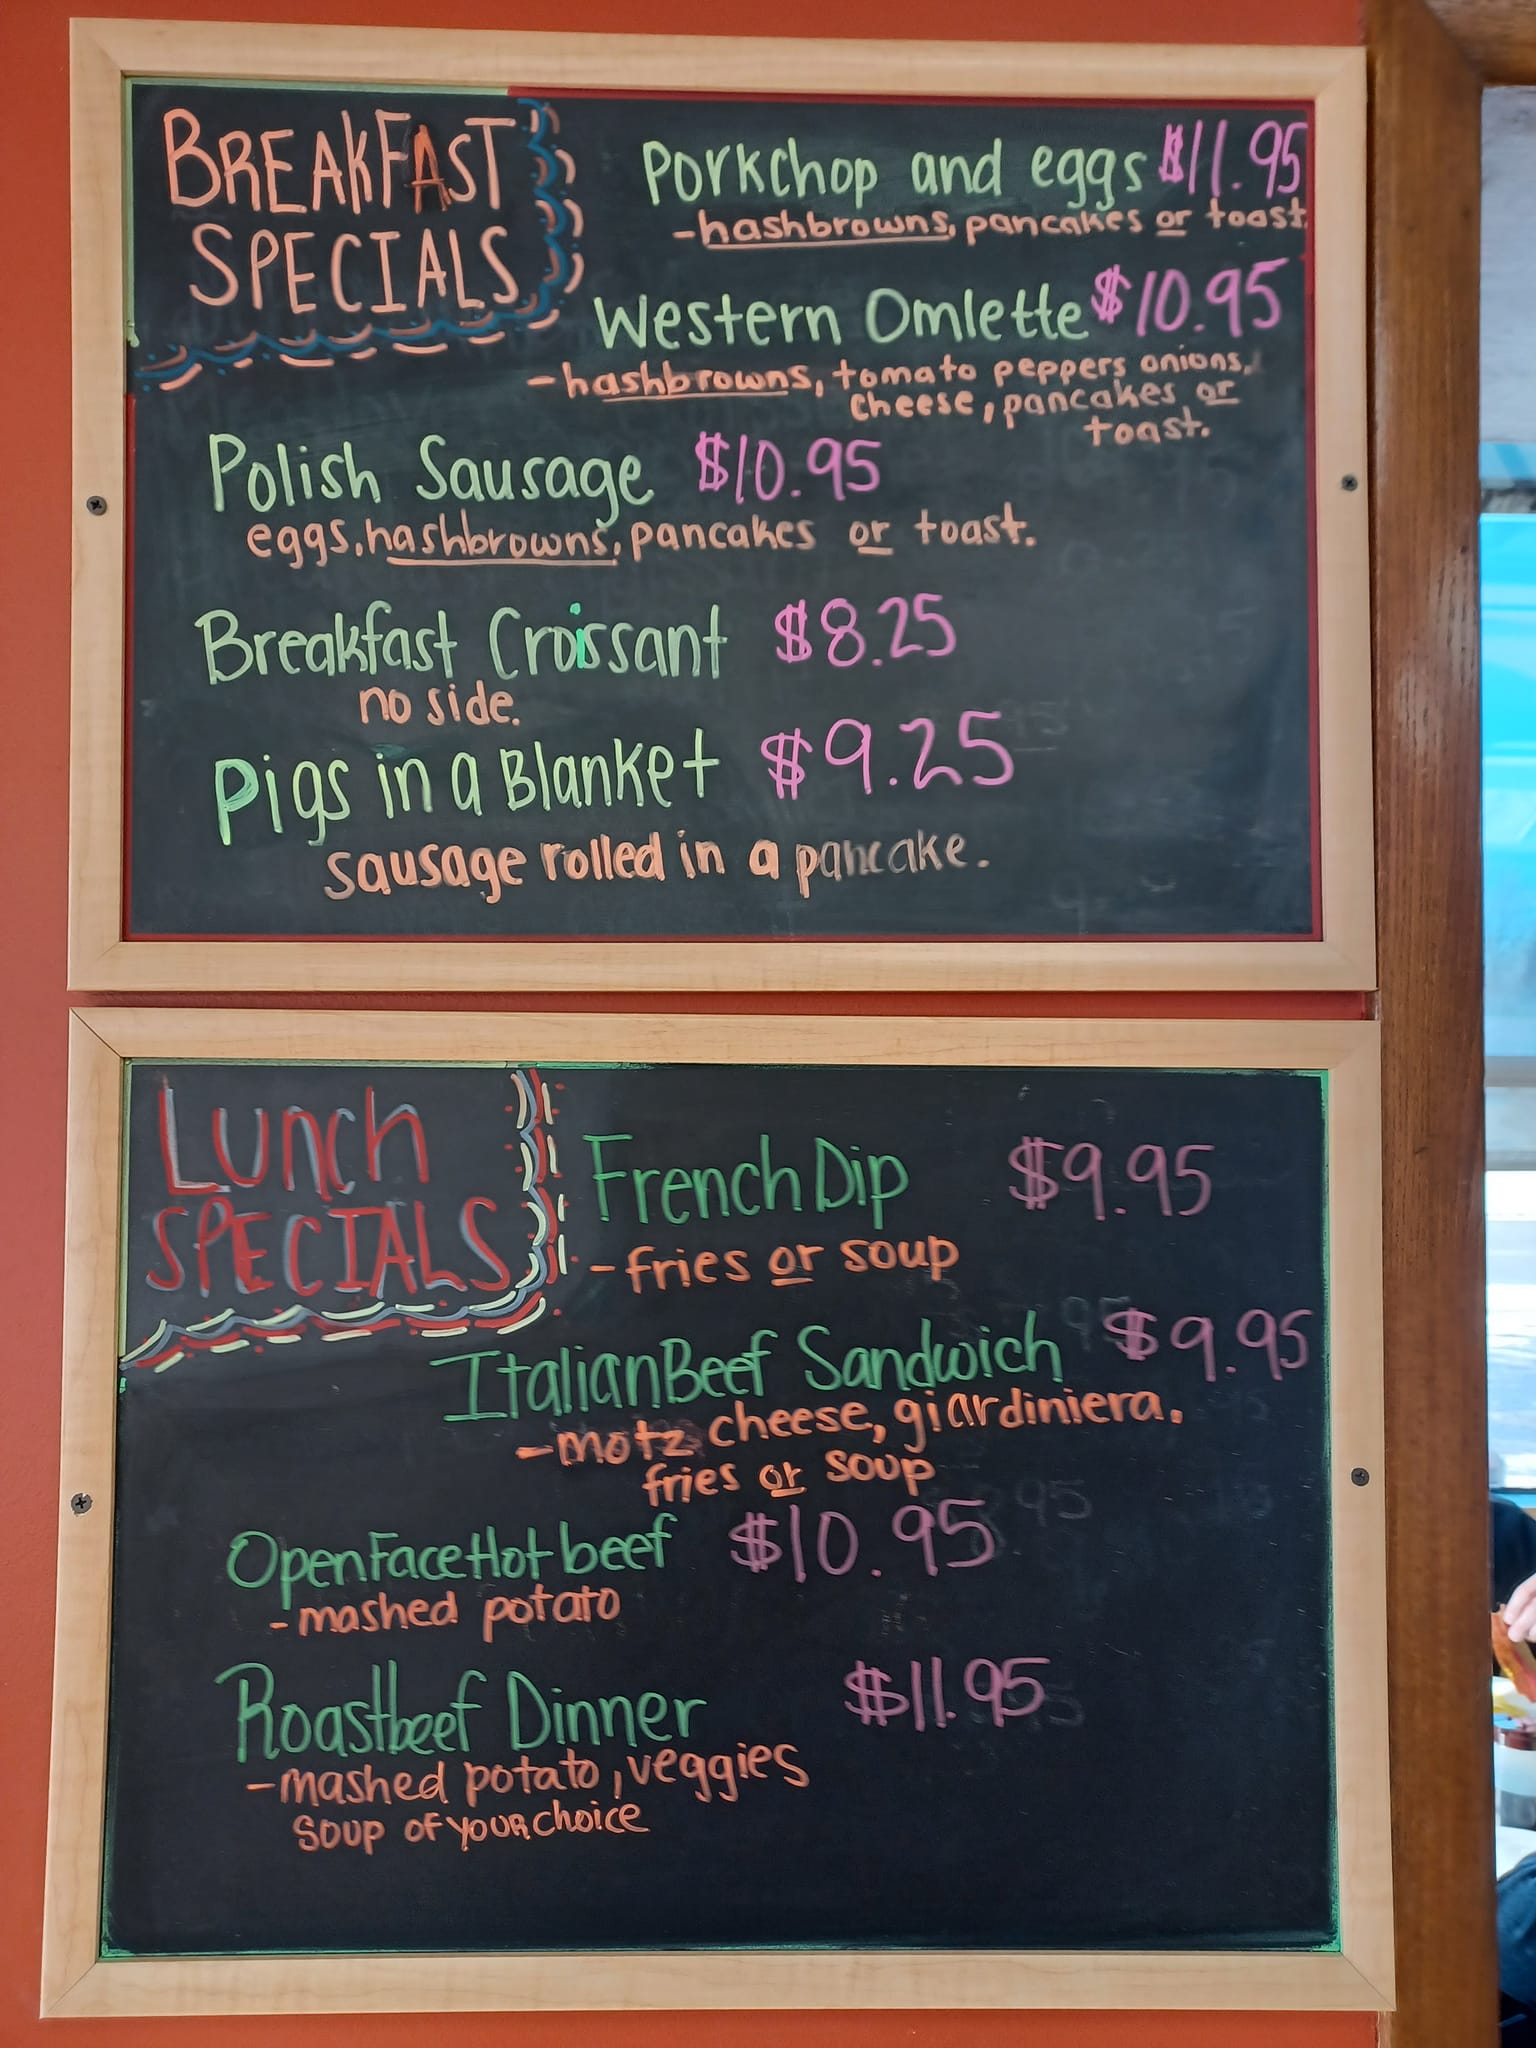 BREAKFAST
SPECIALS
Porkchop and eggs $11.95
- hashbrowns, pancakes or toast.
Western Omlette $10.95
- hashbrowns, tomato peppers onions,
cheese, pancakes or
toast.
Polish Sausage $10.95
eggs, hashbrowns, pancakes or toast.
Breakfast Croissant $8.25
no side.
Pigs in a Blanket $9.25
sausage rolled in a pancake.
Lunch
SPECIALS
French Dip $9.95
- fries or soup
Italian Beef Sandwich $9.95
- motz cheese, giardiniera.
fries or soup
Open Face Hot beef $10.95
- mashed potato
Roastbeef Dinner $11.95
- mashed potato, veggies
soup of your choice